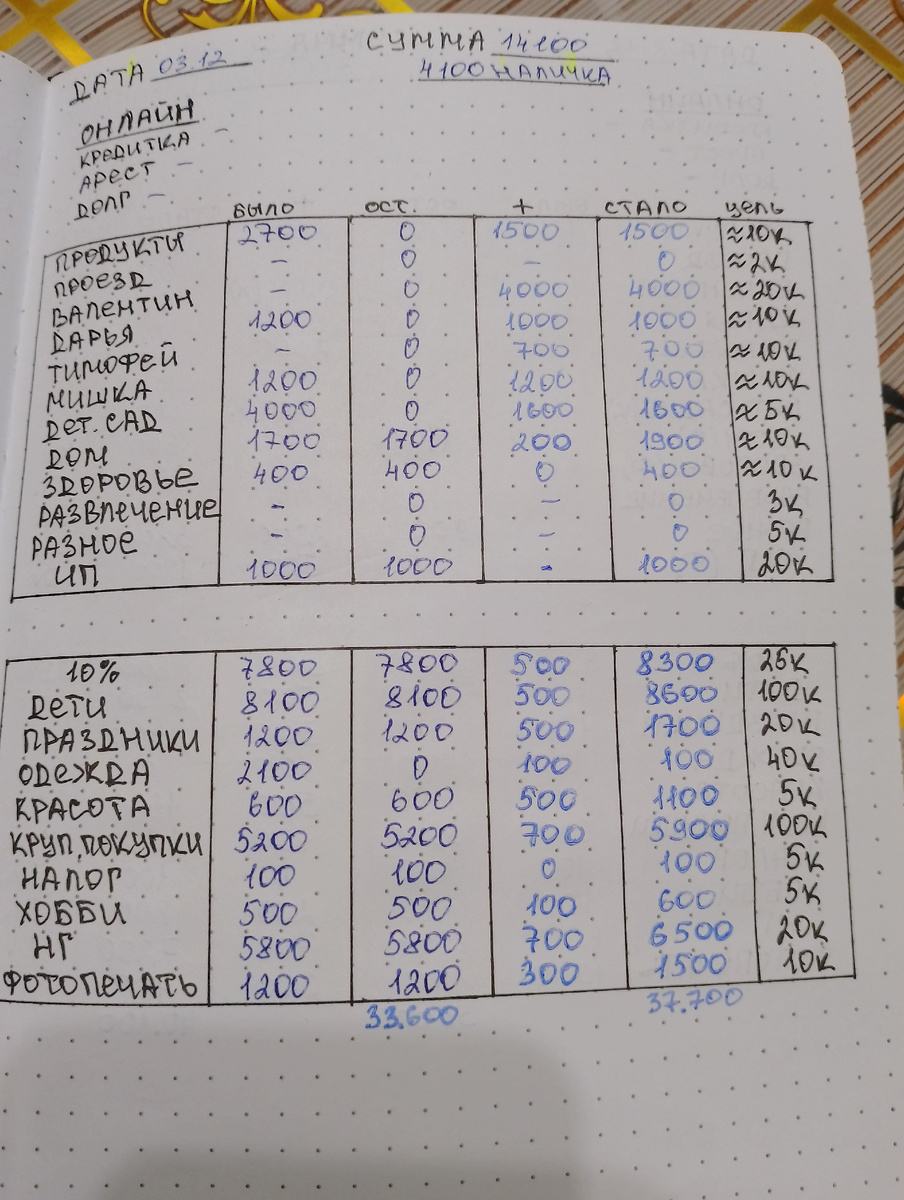 СУММА 14100
ДАТА 03.12 4100 НАЛИЧКА
ОНЛАЙН
КРЕДИТКА –
АРЕСТ –
ДОЛГ –
БЫЛО ОСТ. + СТАЛО ЦЕЛЬ
ПРОДУКТЫ 2700 0 1500 1500 ≈10К
ПРОЕЗД – 0 – 0 ≈2К
ВАЛЕНТИН – 0 4000 4000 ≈20К
ДАРЬЯ 1200 0 1000 1000 ≈10К
ТИМОФЕЙ – 0 700 700 ≈10К
МИШКА 1200 0 1200 1200 ≈10К
ДЕТ. САД 4000 0 1600 1600 ≈5К
ДОМ 1700 1700 200 1900 ≈10К
ЗДОРОВЬЕ 400 400 0 400 ≈10К
РАЗВЛЕЧЕНИЕ - 0 – 0 3К
РАЗНОЕ - 0 – 0 5К
ИП 1000 1000 - 1000 20К
10% 7800 7800 500 8300 25К
ДЕТИ 8100 8100 500 8600 100К
ПРАЗДНИКИ 1200 1200 500 1700 20К
ОДЕЖДА 2100 0 100 100 40К
КРАСОТА 600 600 500 1100 5К
КРУП. ПОКУПКИ 5200 5200 700 5900 100К
НАЛОГ 100 100 0 100 5К
ХОББИ 500 500 100 600 5К
НГ 5800 5800 700 6500 20К
ФОТОПЕЧАТЬ 1200 1200 300 1500 10К
33.600 37.700